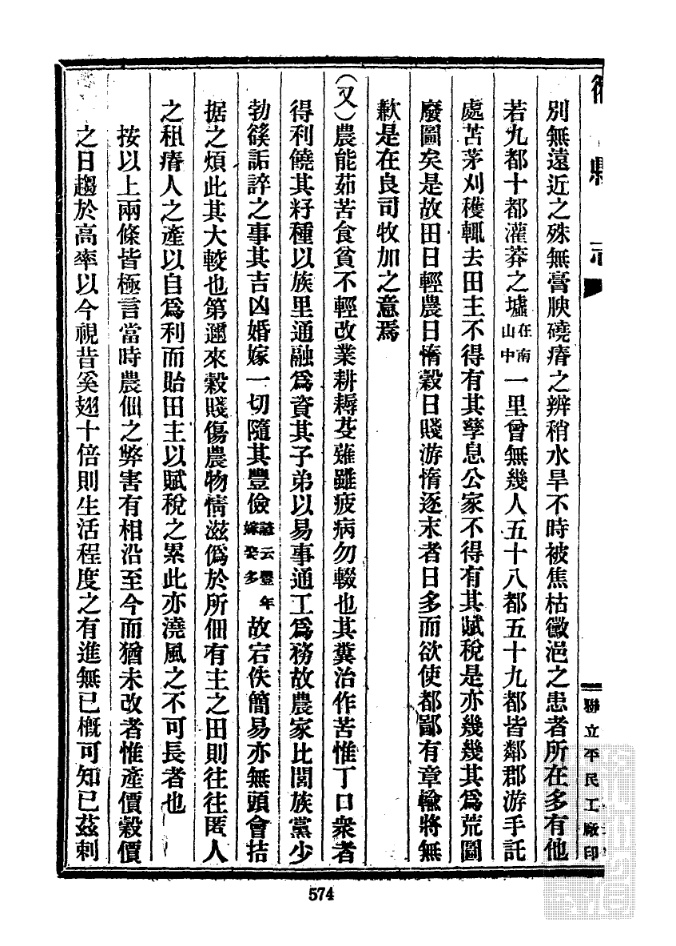 縣志
聯立平民工廠印
別無遠近之殊無膏腴磽瘠之辨稍水旱不時被焦枯黴浥之患者所在多有他
若九都十都灌莽之墟在南山中一里曾無幾人五十八都五十九都皆鄰郡游手託
處苦茅刈穫輒去田主不得有其孳息公家不得有其賦稅是亦幾幾其爲荒圖
廢圖矣是故田日輕農日惰穀日賤游惰逐末者日多而欲使都鄙有章輸將無
歉是在良司牧加之意焉
(又)農能茹苦食貧不輕改業耕耨芟薙雖疲病勿輟也其糞治作苦惟丁口衆者
得利饒其籽種以族里通融爲資其子弟以易事通工爲務故農家比閭族黨少
勃篌詬誶之事其吉凶婚嫁一切隨其豐儉諺云豐年嫁娶多故宕佚簡易亦無頭會拮
据之煩此其大較也第邇來穀賤傷農物情滋僞於所佃有主之田則往往匿人
之租瘠人之產以自爲利而貽田主以賦稅之累此亦澆風之不可長者也
按以上兩條皆極言當時農佃之弊害有相沿至今而猶未改者惟產價穀價
之日趨於高率以今視昔奚翅十倍則生活程度之有進無已槪可知已茲刺
574